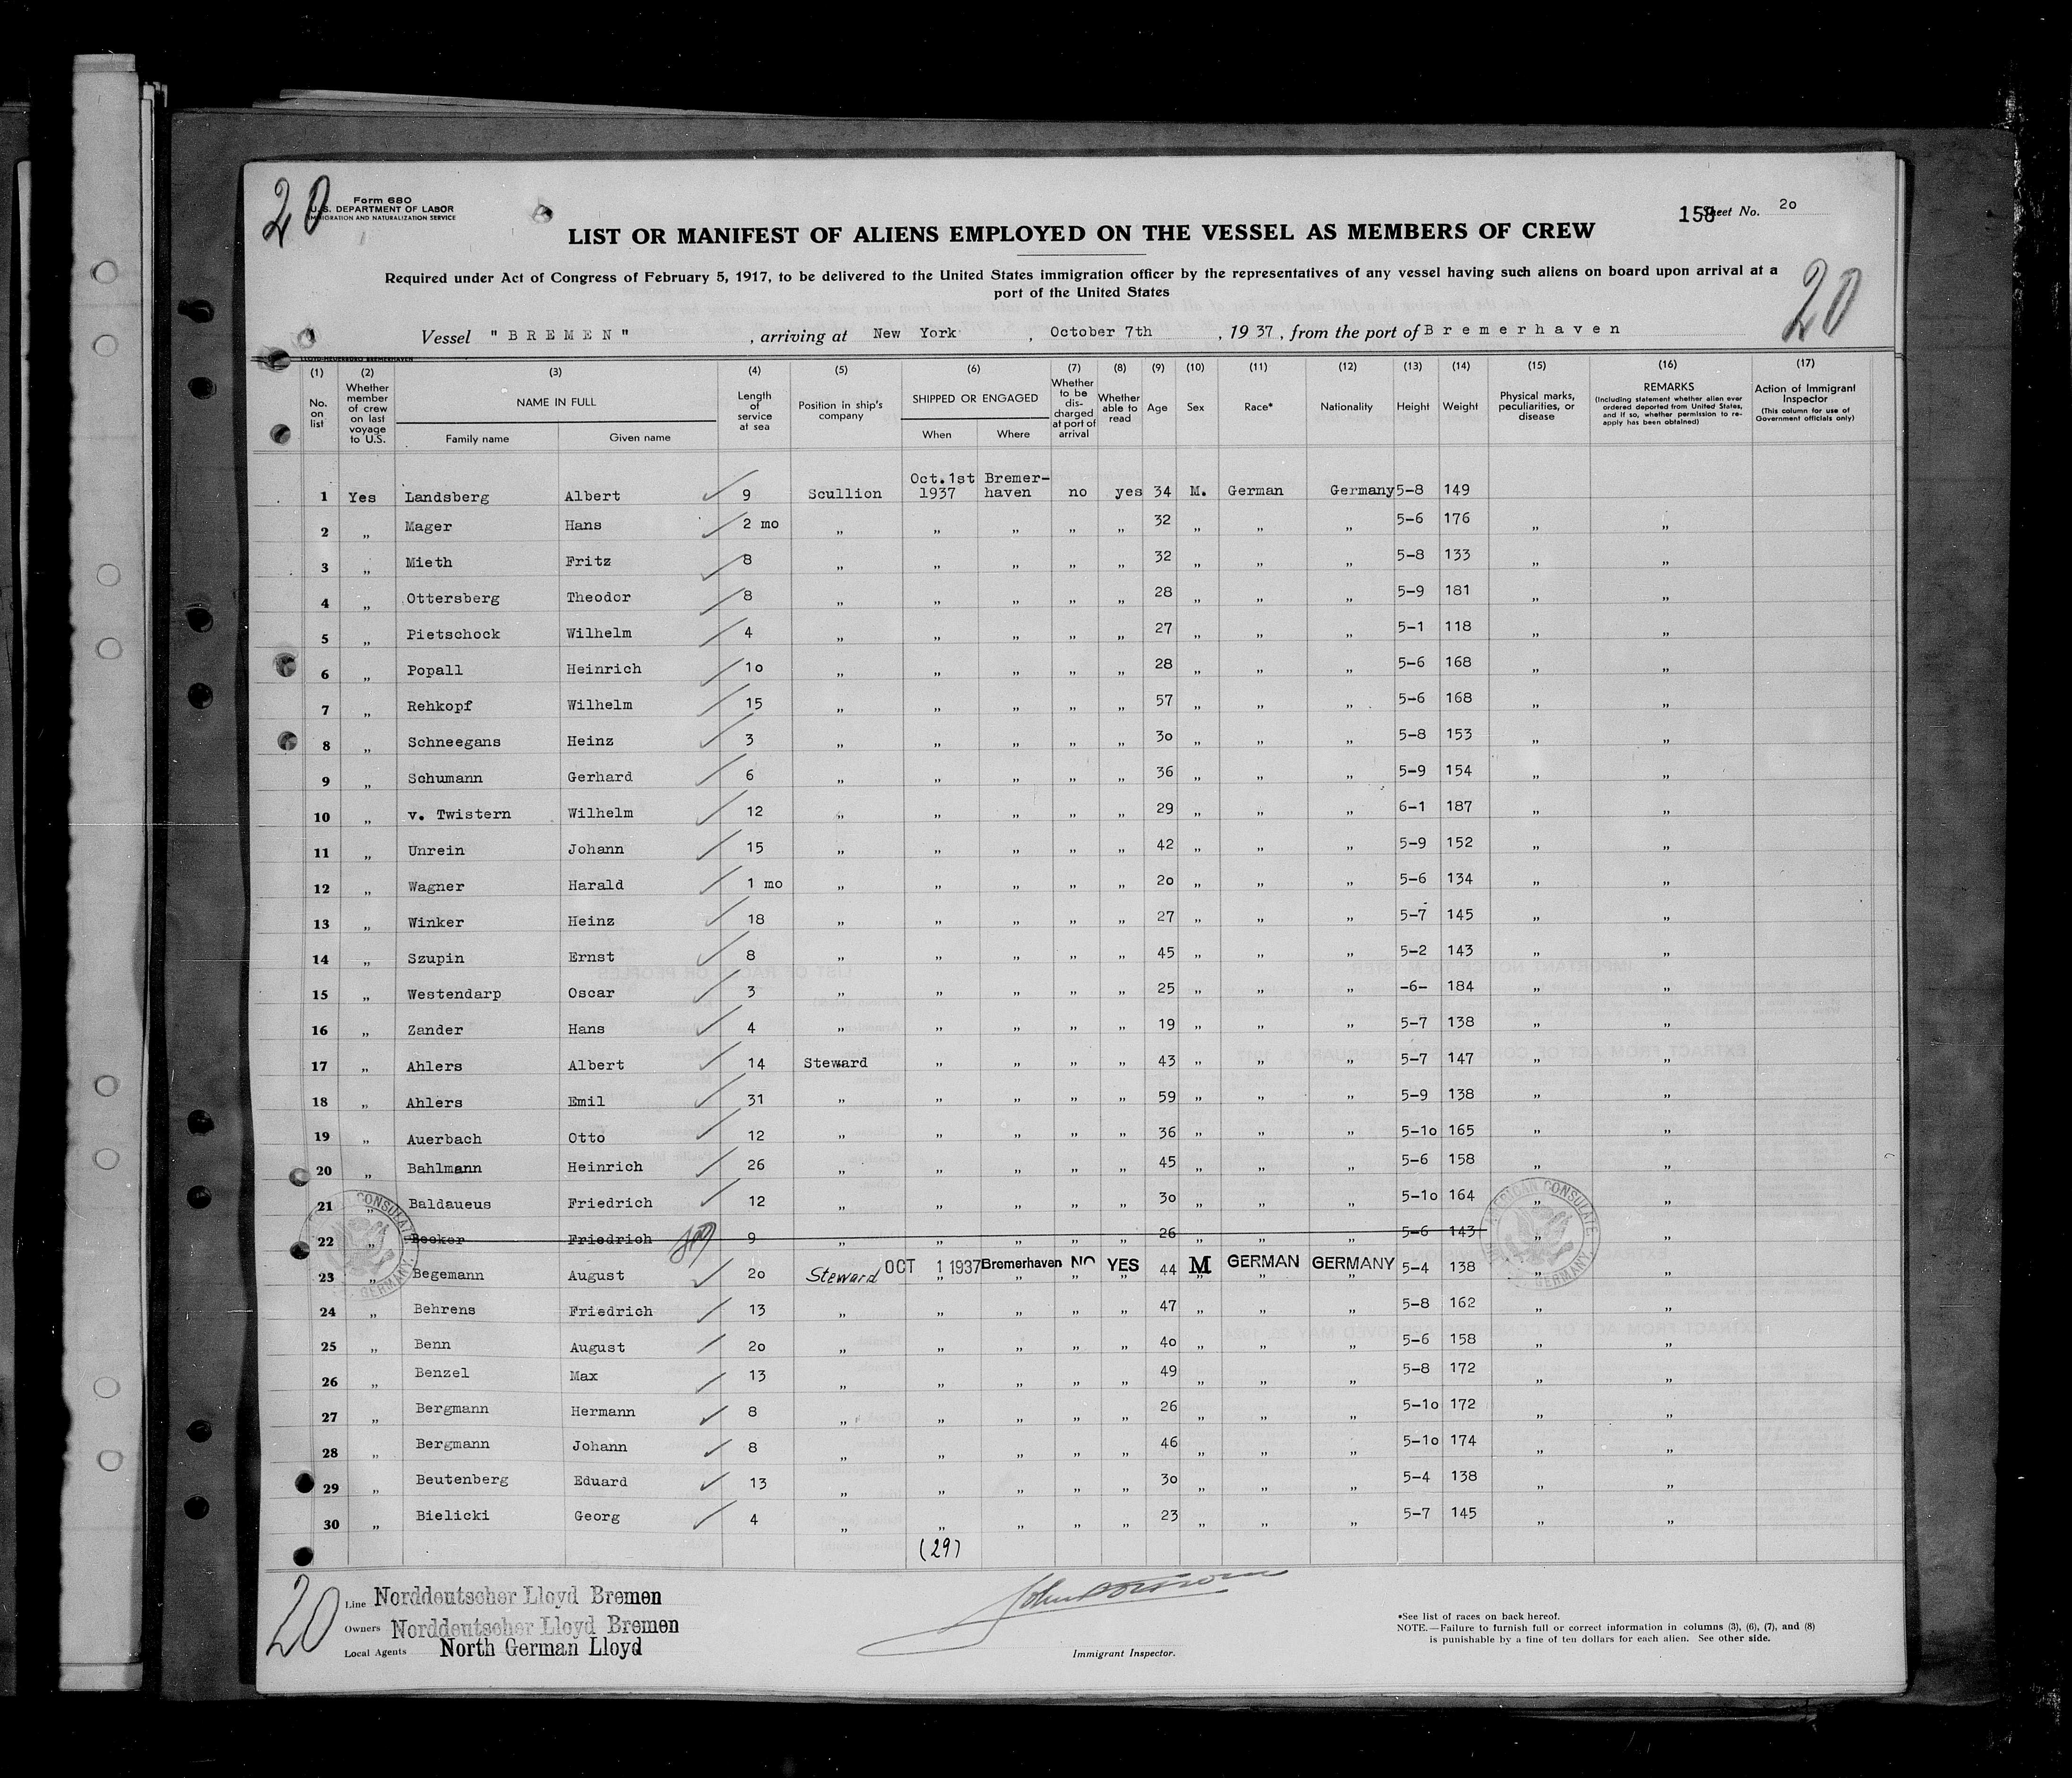 20
Form 680
U.S. DEPARTMENT OF LABOR
IMMIGRATION AND NATURALIZATION SERVICE
150 Sheet No. 2o
LIST OR MANIFEST OF ALIENS EMPLOYED ON THE VESSEL AS MEMBERS OF CREW
Required under Act of Congress of February 5, 1917, to be delivered to the United States immigration officer by the representatives of any vessel having such aliens on board upon arrival at a
port of the United States
20
Vessel "BREMEN", arriving at New York, October 7th, 1937, from the port of Bremerhaven
(1) (2) (3) (4) (5) (6) (7) (8) (9) (10) (11) (12) (13) (14) (15) (16) (17)
No. on list
Whether member of crew on last voyage to U.S.
NAME IN FULL
Family name Given name
Length of service at sea
Position in ship's company
SHIPPED OR ENGAGED
When Where
Whether to be discharged at port of arrival
Whether able to read
Age
Sex
Race*
Nationality
Height
Weight
Physical marks, peculiarities, or disease
REMARKS
(Including statement whether alien ever ordered deported from United States, and if so, whether permission to re-apply has been obtained)
Action of Immigrant Inspector
(This column for use of Government officials only)
1 Yes Landsberg Albert 9 Scullion Oct.1st 1937 Bremer-haven no yes 34 M. German Germany 5-8 149
2 „ Mager Hans 2 mo „ „ „ „ „ 32 „ „ „ 5-6 176 „ „
3 „ Mieth Fritz 8 „ „ „ „ „ 32 „ „ „ 5-8 133 „ „
4 „ Ottersberg Theodor 8 „ „ „ „ „ 28 „ „ „ 5-9 181 „ „
5 „ Pietschock Wilhelm 4 „ „ „ „ „ 27 „ „ „ 5-1 118 „ „
6 „ Popall Heinrich 1o „ „ „ „ „ 28 „ „ „ 5-6 168 „ „
7 „ Rehkopf Wilhelm 15 „ „ „ „ „ 57 „ „ „ 5-6 168 „ „
8 „ Schneegans Heinz 3 „ „ „ „ „ 3o „ „ „ 5-8 153 „ „
9 „ Schumann Gerhard 6 „ „ „ „ „ 36 „ „ „ 5-9 154 „ „
10 „ v. Twistern Wilhelm 12 „ „ „ „ „ 29 „ „ „ 6-1 187 „ „
11 „ Unrein Johann 15 „ „ „ „ „ 42 „ „ „ 5-9 152 „ „
12 „ Wagner Harald 1 mo „ „ „ „ „ 2o „ „ „ 5-6 134 „ „
13 „ Winker Heinz 18 „ „ „ „ „ 27 „ „ „ 5-7 145 „ „
14 „ Szupin Ernst 8 „ „ „ „ „ 45 „ „ „ 5-2 143 „ „
15 „ Westendarp Oscar 3 „ „ „ „ „ 25 „ „ „ -6- 184 „ „
16 „ Zander Hans 4 „ „ „ „ „ 19 „ „ „ 5-7 138 „ „
17 „ Ahlers Albert 14 Steward „ „ „ „ 43 „ „ „ 5-7 147 „ „
18 „ Ahlers Emil 31 „ „ „ „ „ 59 „ „ „ 5-9 138 „ „
19 „ Auerbach Otto 12 „ „ „ „ „ 36 „ „ „ 5-1o 165 „ „
20 „ Bahlmann Heinrich 26 „ „ „ „ „ 45 „ „ „ 5-6 158 „ „
21 „ Baldaueus Friedrich 12 „ „ „ „ „ 3o „ „ „ 5-1o 164 „ „
22 „ Becker Friedrich 9 „ „ „ „ „ 26 „ „ „ 5-6 143 „ „
23 „ Begemann August 2o Steward OCT 1 1937 Bremerhaven NO YES 44 M GERMAN GERMANY 5-4 138 „ „
24 „ Behrens Friedrich 13 „ „ „ „ „ 47 „ „ „ 5-8 162 „ „
25 „ Benn August 2o „ „ „ „ „ 4o „ „ „ 5-6 158 „ „
26 „ Benzel Max 13 „ „ „ „ „ 49 „ „ „ 5-8 172 „ „
27 „ Bergmann Hermann 8 „ „ „ „ „ 26 „ „ „ 5-1o 172 „ „
28 „ Bergmann Johann 8 „ „ „ „ „ 46 „ „ „ 5-1o 174 „ „
29 „ Beutenberg Eduard 13 „ „ „ „ „ 3o „ „ „ 5-4 138 „ „
30 „ Bielicki Georg 4 „ „ „ „ „ 23 „ „ „ 5-7 145 „ „
(29)
AMERICAN CONSULATE GERMANY
20
Line Norddeutscher Lloyd Bremen
Owners Norddeutscher Lloyd Bremen
Local Agents North German Lloyd
Immigrant Inspector.
*See list of races on back hereof.
NOTE.—Failure to furnish full or correct information in columns (3), (6), (7), and (8)
is punishable by a fine of ten dollars for each alien. See other side.